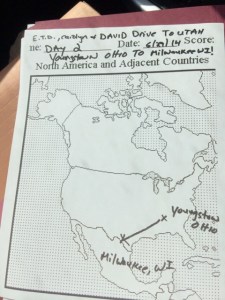 E.T.D., Kaitlyn & DAVID DRIVE TO UTAH
ne: DAY 2 Date: 6/29/14 Score:
Youngstown OHIO TO MILWAUKEE WI!
North America and Adjacent Countries
35
Youngstown
OHIO
Milwaukee, WI